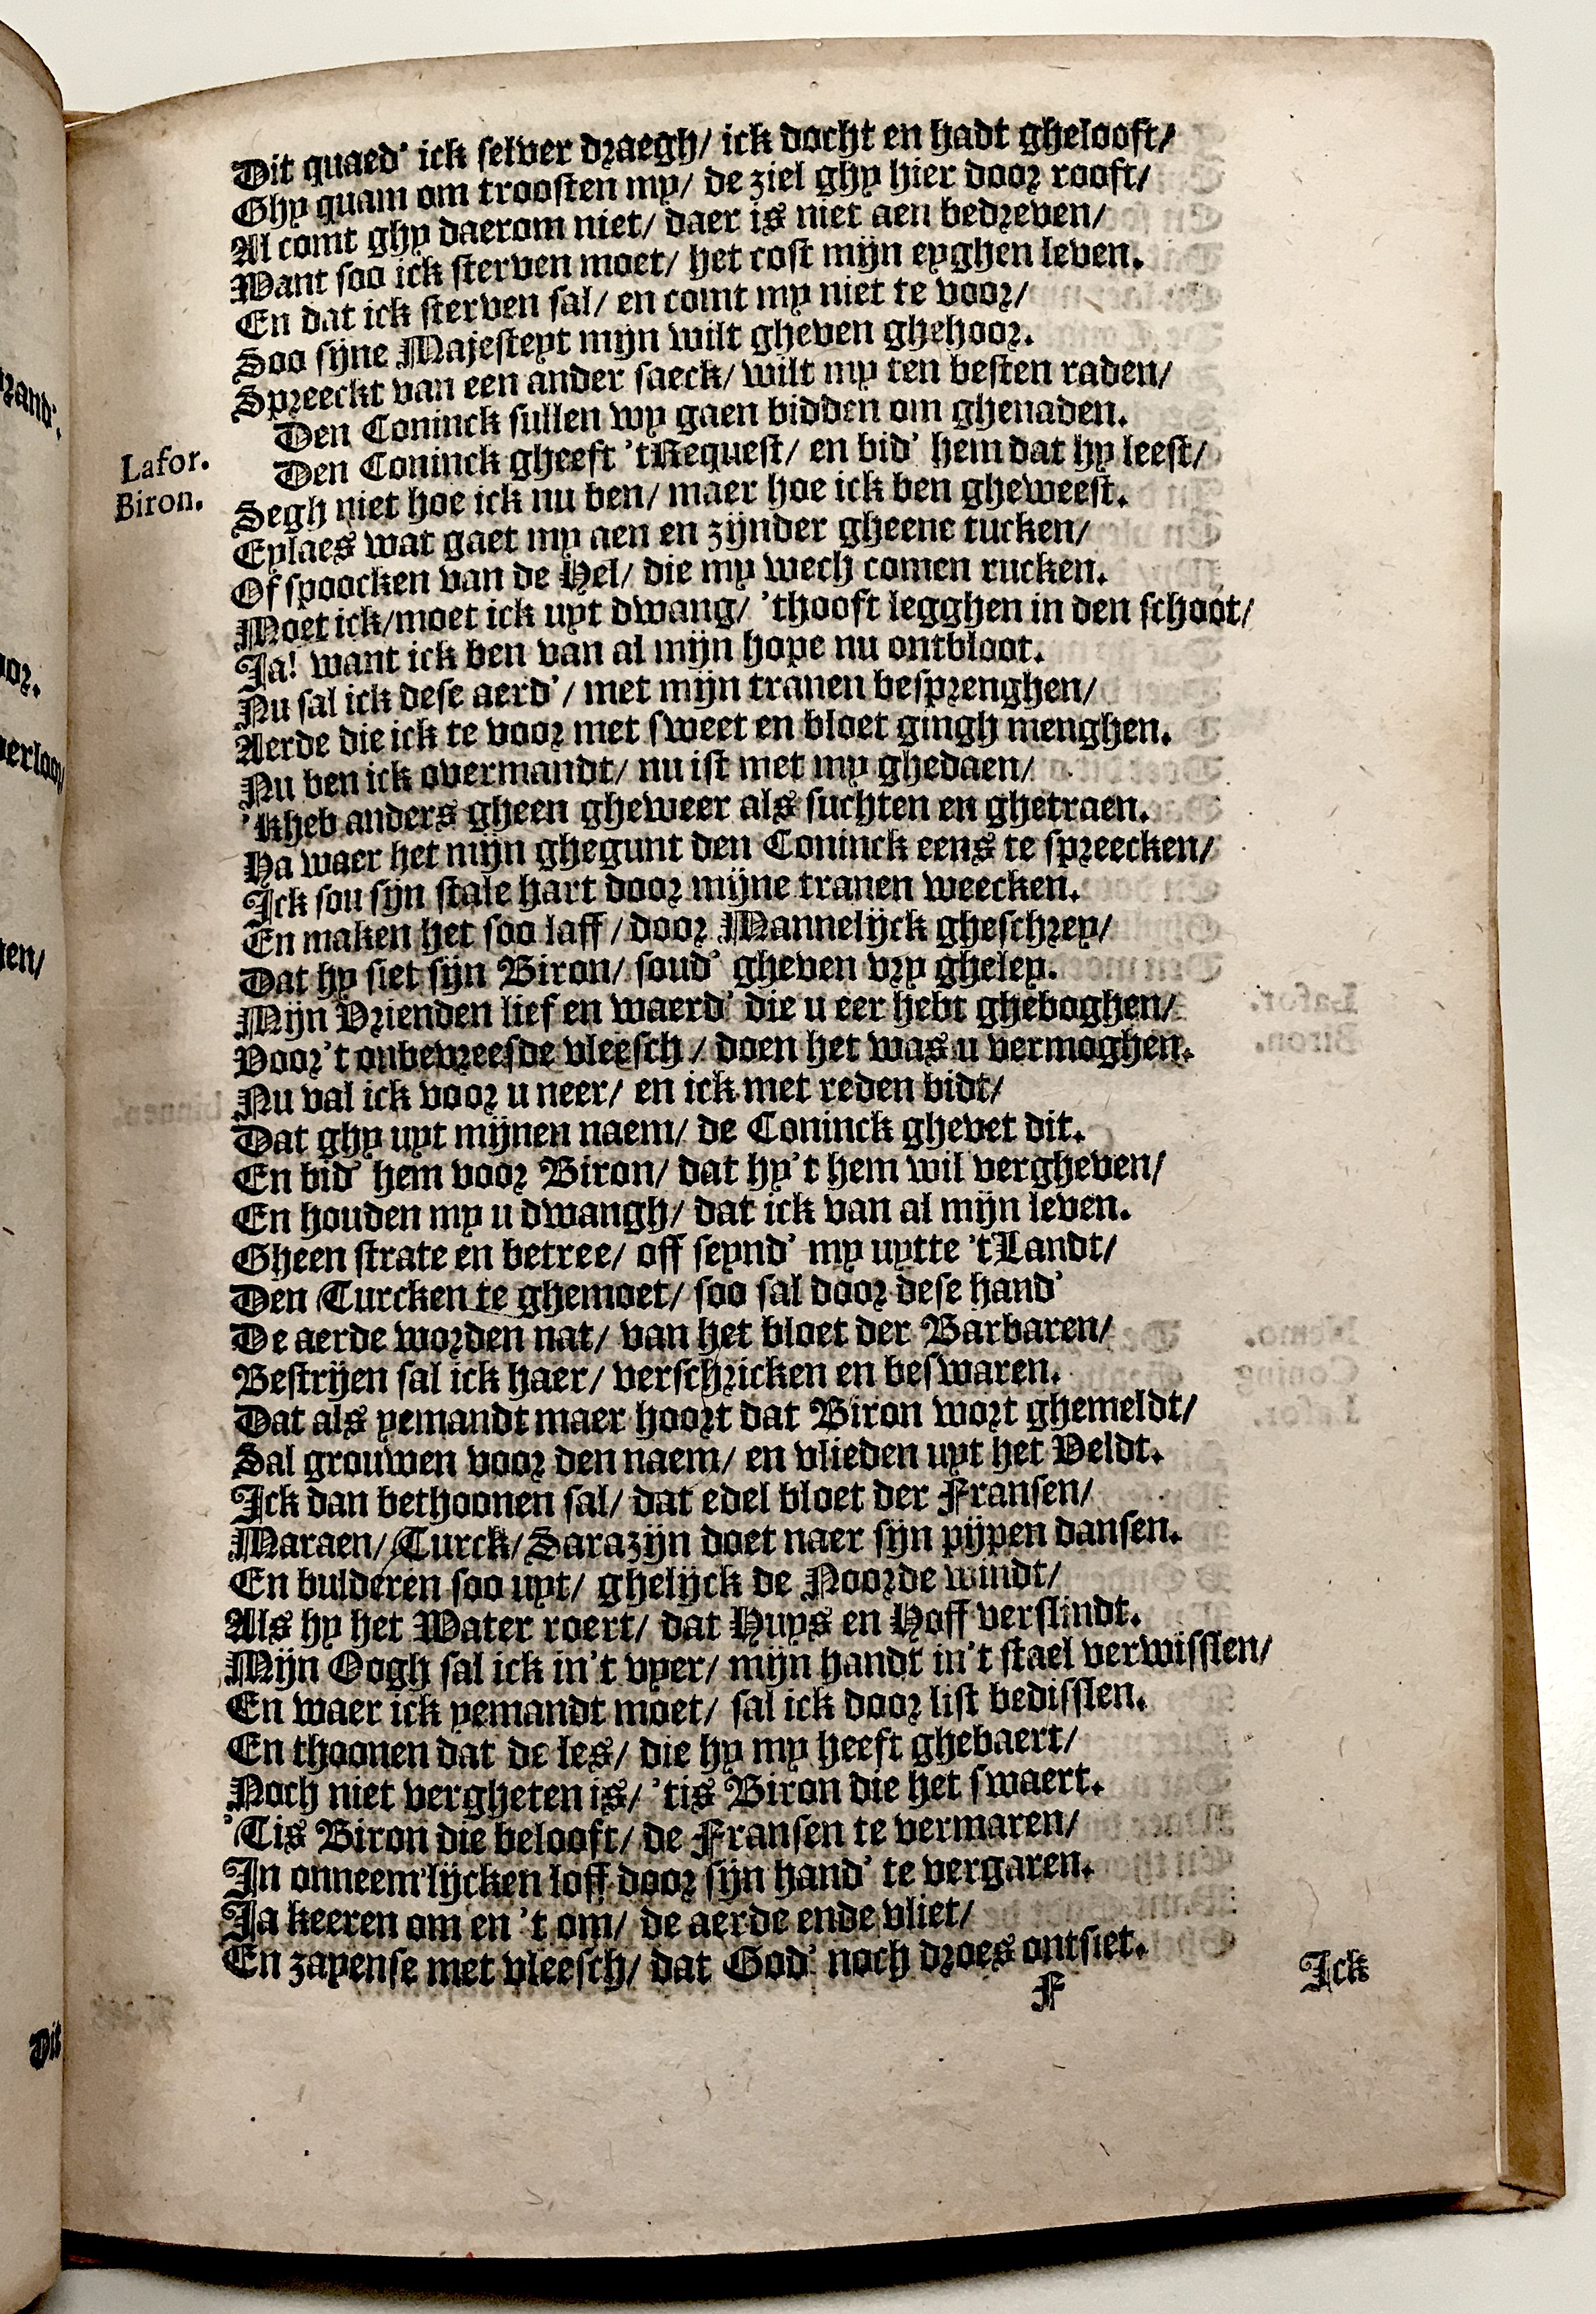 Dit quaed' ick selver draegh/ ick docht en hadt ghelooft/
Ghy quam om troosten my/ de ziel ghy hier door rooft/
Al comt ghy daerom niet/ daer is niet aen bedreven/
Want soo ick sterven moet/ het cost mijn eyghen leven.
En dat ick sterven sal/ en comt my niet te voor/
Soo sijne Majesteyt mijn wilt gheven ghehoor.
Spreeckt van een ander saeck/ wilt my ten besten raden/
Lafor. Den Coninck sullen wy gaen bidden om ghenaden.
Biron. Den Coninck gheeft 'tRequest/ en bid' hem dat hy leest/
Segh niet hoe ick nu ben/ maer hoe ick ben gheweest.
Eylaes wat gaet my aen en zijnder gheene tucken/
Of spoocken van de Hel/ die my wech comen rucken.
Moet ick/moet ick uyt dwang/ 'thooft legghen in den schoot/
Ja! want ick ben van al mijn hope nu ontbloot.
Nu sal ick dese aerd'/ met mijn tranen besprenghen/
Aerde die ick te voor met sweet en bloet gingh menghen.
Nu ben ick overmandt/ nu ist met my ghedaen/
'Kheb anders gheen gheweer als suchten en ghetraen.
Ha waer het mijn ghegunt den Coninck eens te spreecken/
Ick sou sijn stale hart door mijne tranen weecken.
En maken het soo laff/ door Mannelijck gheschrey/
Dat hy siet sijn Biron/ soud' gheven vry gheley.
Mijn Vrienden lief en waerd' die u eer hebt gheboghen/
Voor't onbevreesde vleesch/ doen het was u vermoghen.
Nu val ick voor u neer/ en ick met reden bidt/
Dat ghy uyt mijnen naem/ de Coninck ghevet dit.
En bid' hem voor Biron/ dat hy't hem wil vergheven/
En houden my u dwangh/ dat ick van al mijn leven.
Gheen strate en betree/ off seynd' my uytte 'tLandt/
Den Turcken te ghemoet/ soo sal door dese hand'
De aerde worden nat/ van het bloet der Barbaren/
Bestrijen sal ick haer/ verschricken en beswaren.
Dat als yemandt maer hoort dat Biron wort ghemeldt/
Sal grouwen voor den naem/ en vlieden uyt het Veldt.
Ick dan bethoonen sal/ dat edel bloet der Fransen/
Maraen/ Turck/ Sarazijn doet naer sijn pijpen dansen.
En bulderen soo uyt/ ghelijck de Noorde windt/
Als hy het Water roert/ dat Huys en Hoff verslindt.
Mijn Oogh sal ick in't vyer/ mijn handt in't stael verwisslen/
En waer ick yemandt moet/ sal ick door list bedisslen.
En thoonen dat de les/ die hy my heeft ghebaert/
Noch niet vergheten is/ 'tis Biron die het swaert.
'Tis Biron die belooft/ de Fransen te vermaren/
In onneem'lijcken loff door sijn hand' te vergaren.
Ja keeren om en 't om/ de aerde ende vliet/
En zapense met vleesch/ dat God' noch droes ontsiet.
F
Ick